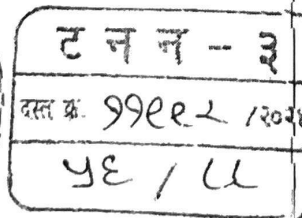 ट न न - ३
दस्त क्र. ११९९२ /२०२
५६ / ८८